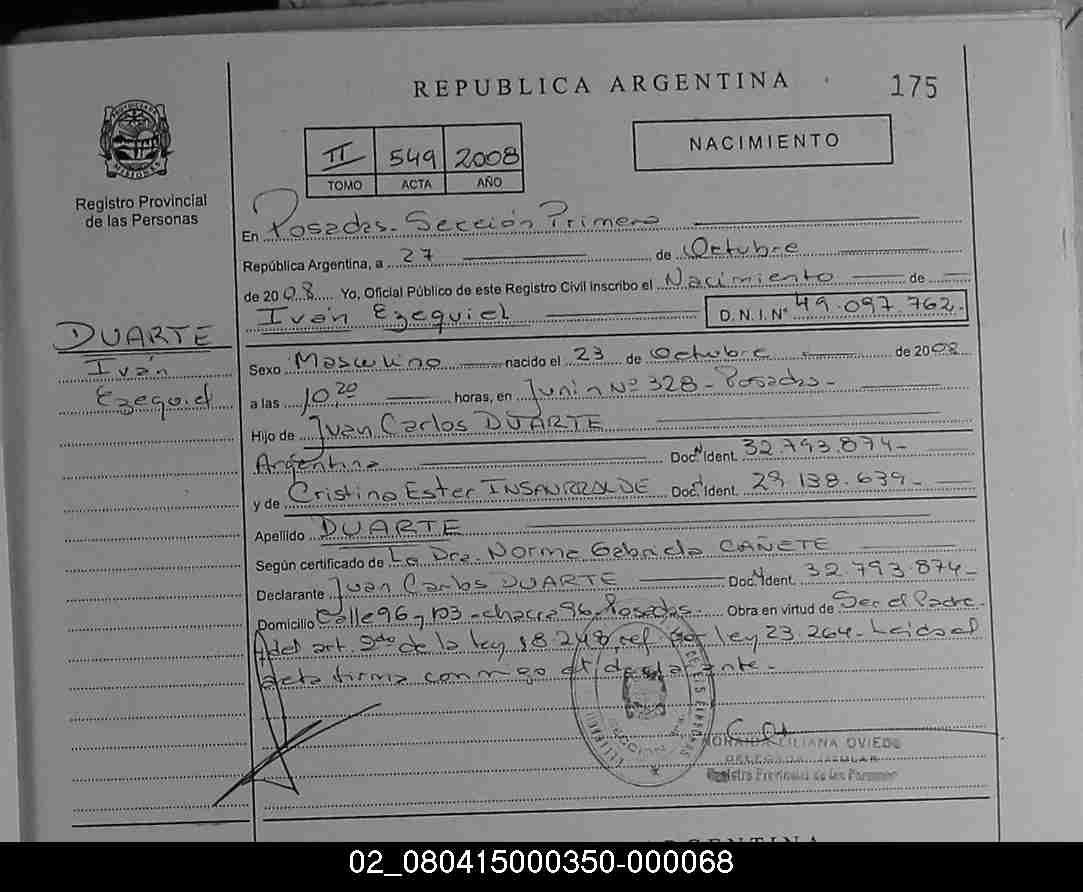 REPUBLICA ARGENTINA
175
PROVINCIA DE MISIONES
Registro Provincial
de las Personas
II 549 2008
TOMO ACTA AÑO
NACIMIENTO
En Posadas. Sección Primera
República Argentina, a 27 de Octubre
de 2008 Yo, Oficial Público de este Registro Civil inscribo el Nacimiento de
Iván Ezequiel D.N.I.Nº 49.097.762.
DUARTE
Iván
Ezequiel
Sexo Masculino nacido el 23 de Octubre de 2008
a las 10,20 horas, en Junín Nº 328 - Posadas -
Hijo de Juan Carlos DUARTE
Argentina Doc. Ident. 32.793.874-
y de Cristina Ester INSAURRALDE Doc. Ident. 29.138.639-
Apellido DUARTE
Según certificado de La Dra. Norma Gabriela CAÑETE
Declarante Juan Carlos DUARTE Doc. Ident. 32.793.874-
Domicilio Calle 96 y 103 - chacra 96 - Posadas. Obra en virtud de Ser el Padre.
del art. 2do de la ley 18.248, ref por ley 23.264 - Leída el
acta firma conmigo el declarante.
LILIANA OVIEDO
DELEGADA TITULAR
Registro Provincial de las Personas
ARGENTINA
02_080415000350-000068